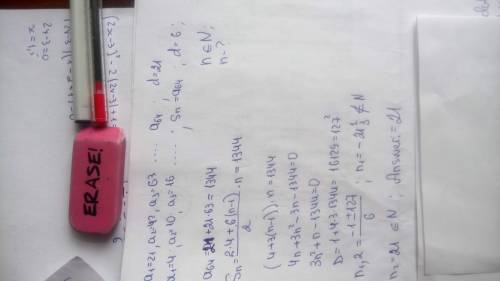 a₁=21, a₂=42, a₃=63 .... a₆₄ ; d=21
a₁=4, a₂=10, a₃=16 ..... ; Sn=a₆₄ ; d=6 ;
n∈N ;
n-?
a₆₄=21+21·63=1344
Sn=(2·4+6(n-1))/2 · n=1344
(4+3(n-1))·n=1344
4n+3n²-3n-1344=0
3n²+n-1344=0
D=1+4·3·1344=16129=127²
n₁,₂=(-1±127)/6 ; n₁=-21⅓ ∉ N
n₂=21 ∈ N ; Answer:=21
ERASE!
2x-3=0